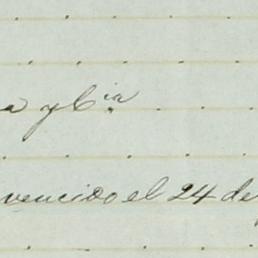 a y Cia
vencido el 24 de